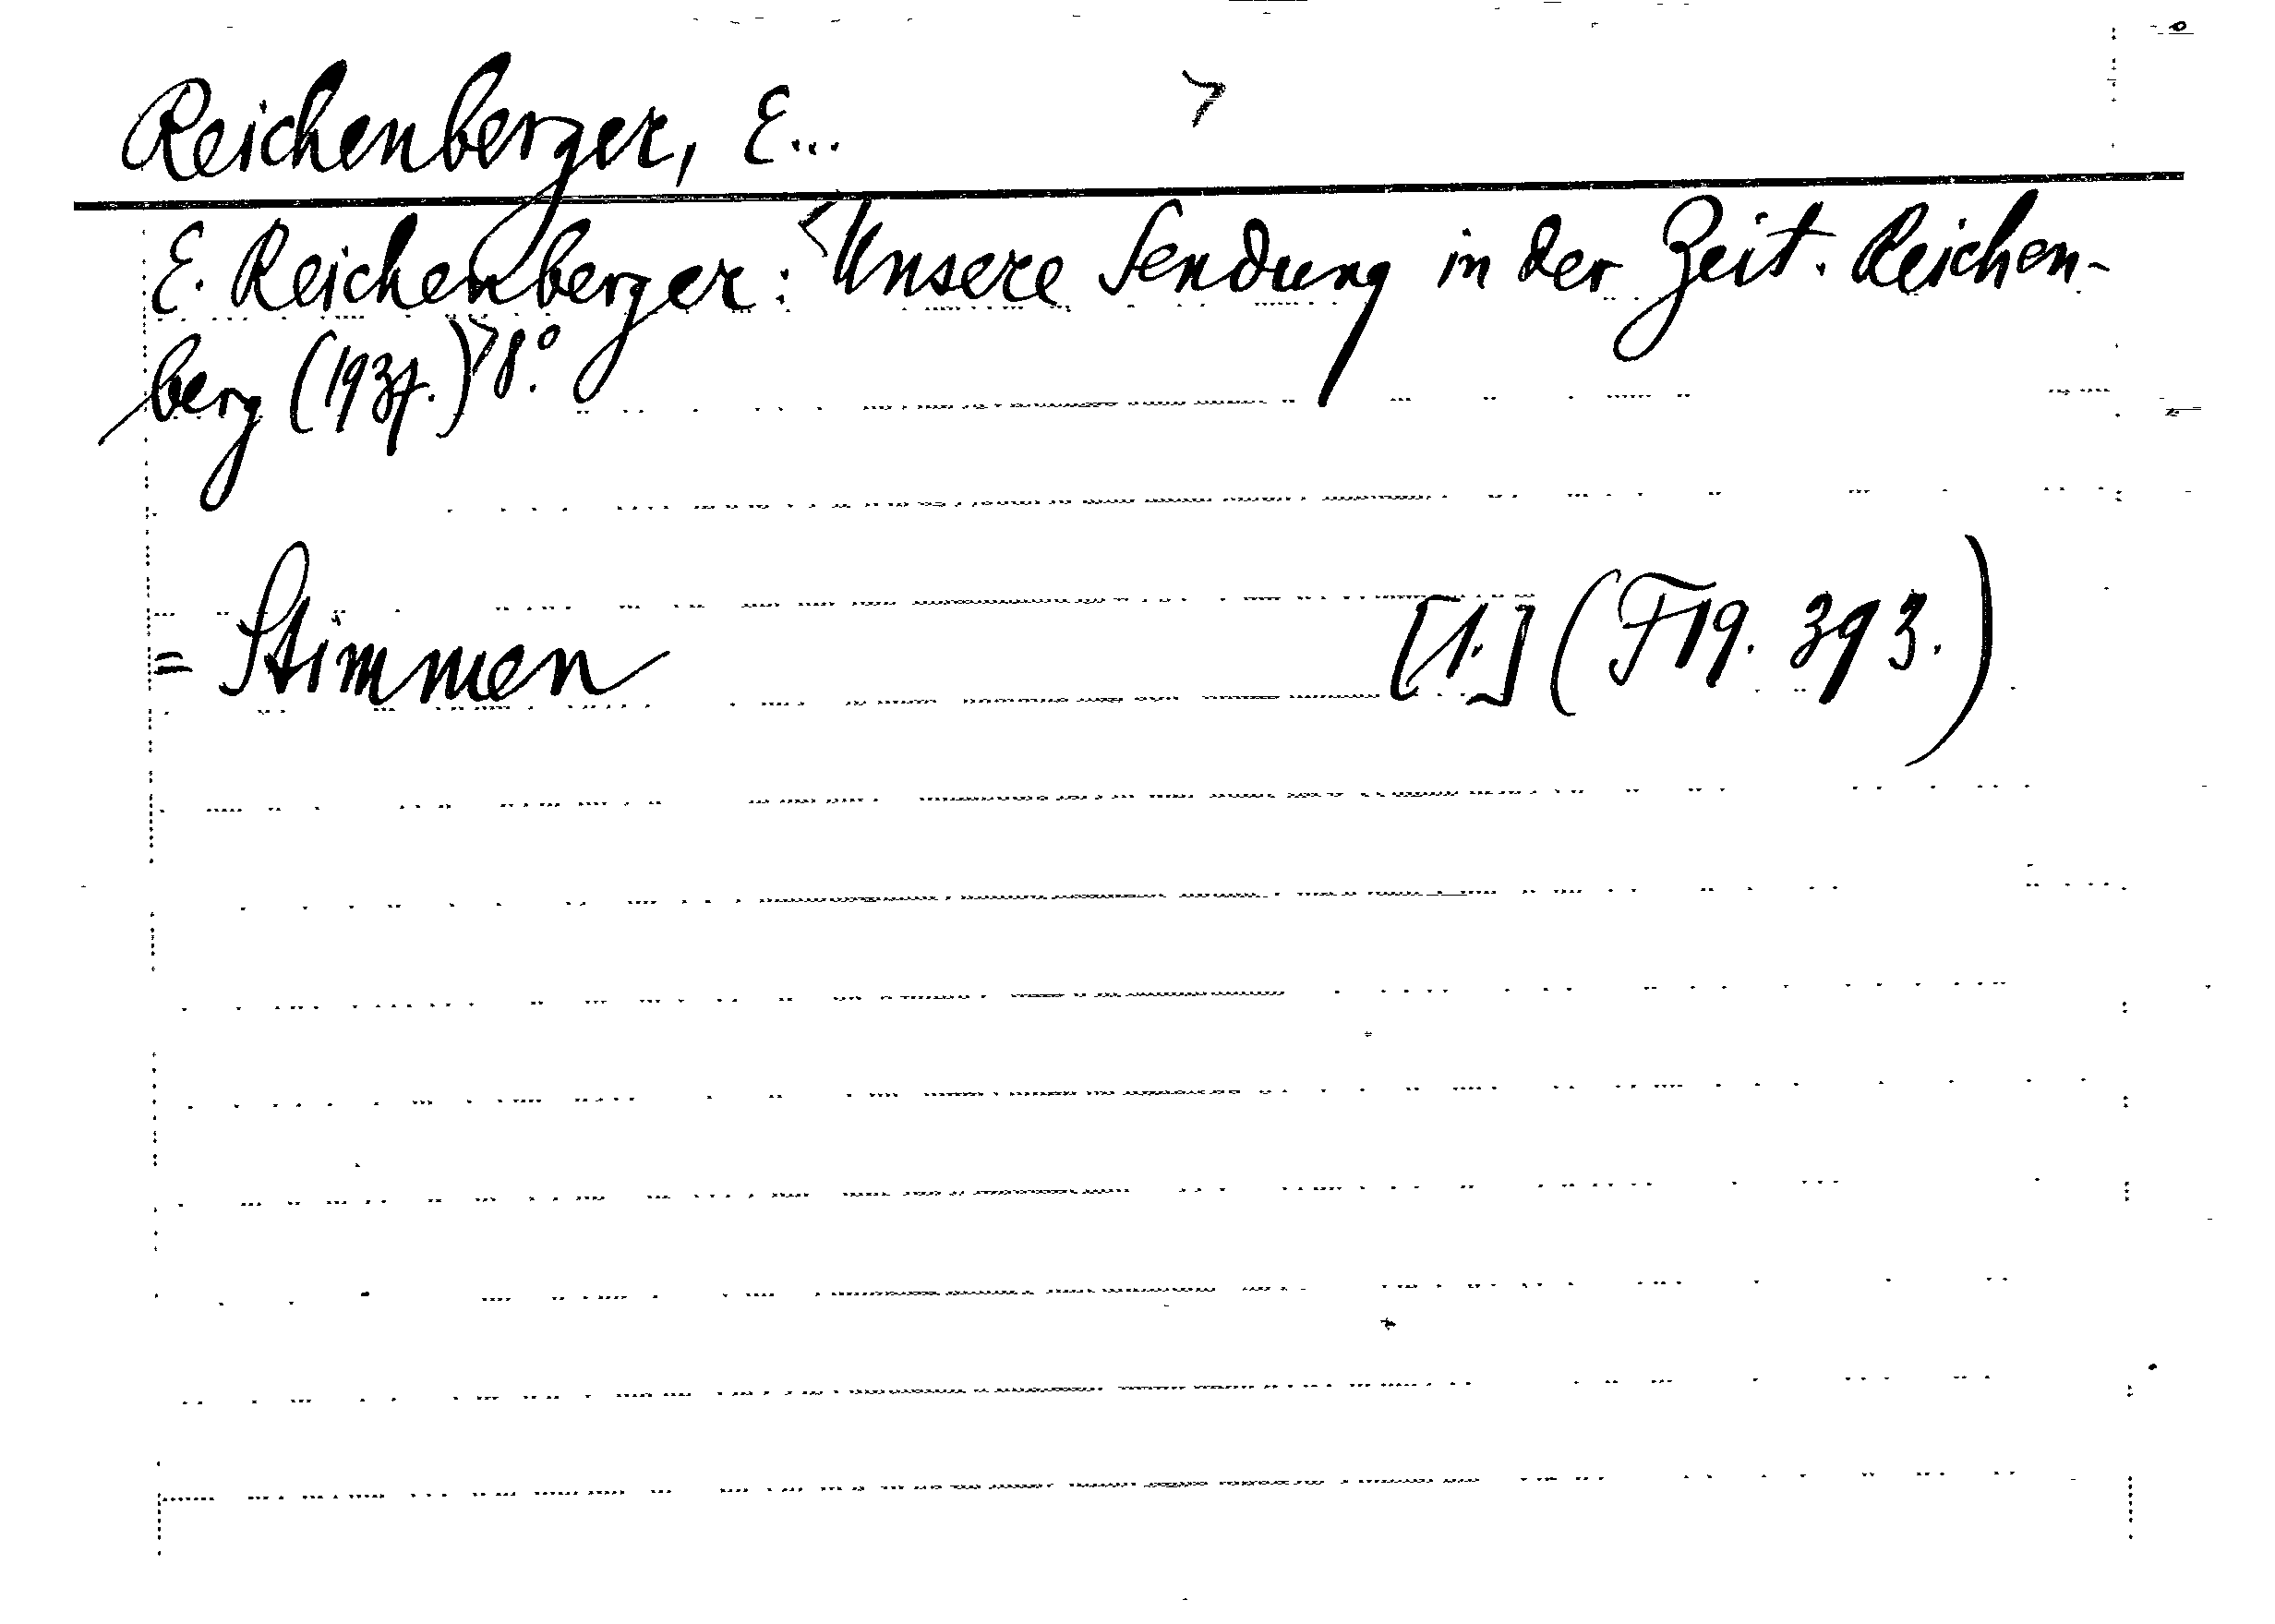 Reichenberger, E...
E. Reichenberger: <Unsere Sendung in der Zeit. Reichen-
berg (1937.)> 8.°
= Stimmen [1.] (F19. 393.)